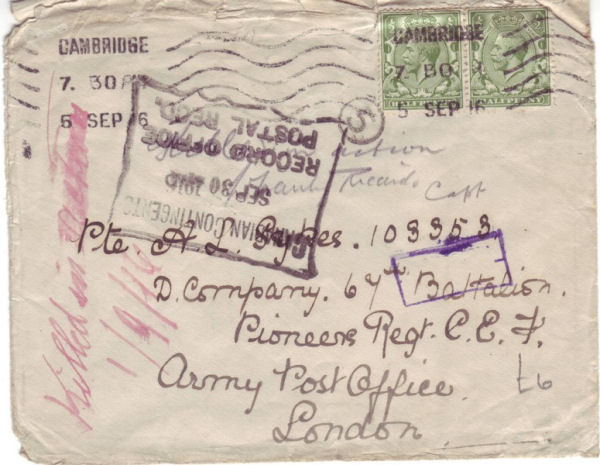 CAMBRIDGE
7. 30 PM
5 SEP 16
CAMBRIDGE
7. 30
5 SEP 16
HALFPENNY
S
CANADIAN CONTINGENTS
SEP 30 1916
RECORD OFFICE
POSTAL RECD.
Killed in action
1/9/16
action
Capt
Pte. A. L. Sykes. 103353.
D. Company. 67th Battalion.
Pioneers Regt. C. E. F.
Army Post Office.
London